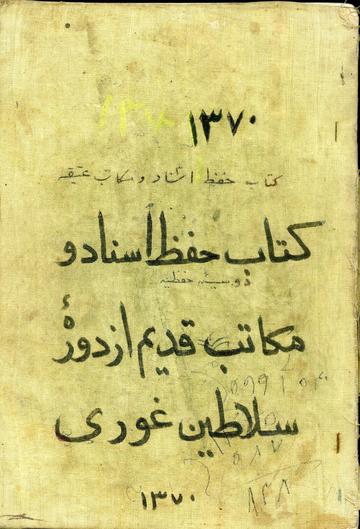 ۱۳۷۰
کتاب حفظ اسناد و مکاتب عتیقه
کتاب حفظ اسناد و
دوسیه حفظیه
مکاتب قدیم از دورهٔ
سلاطین غوری
۱۳۷۰